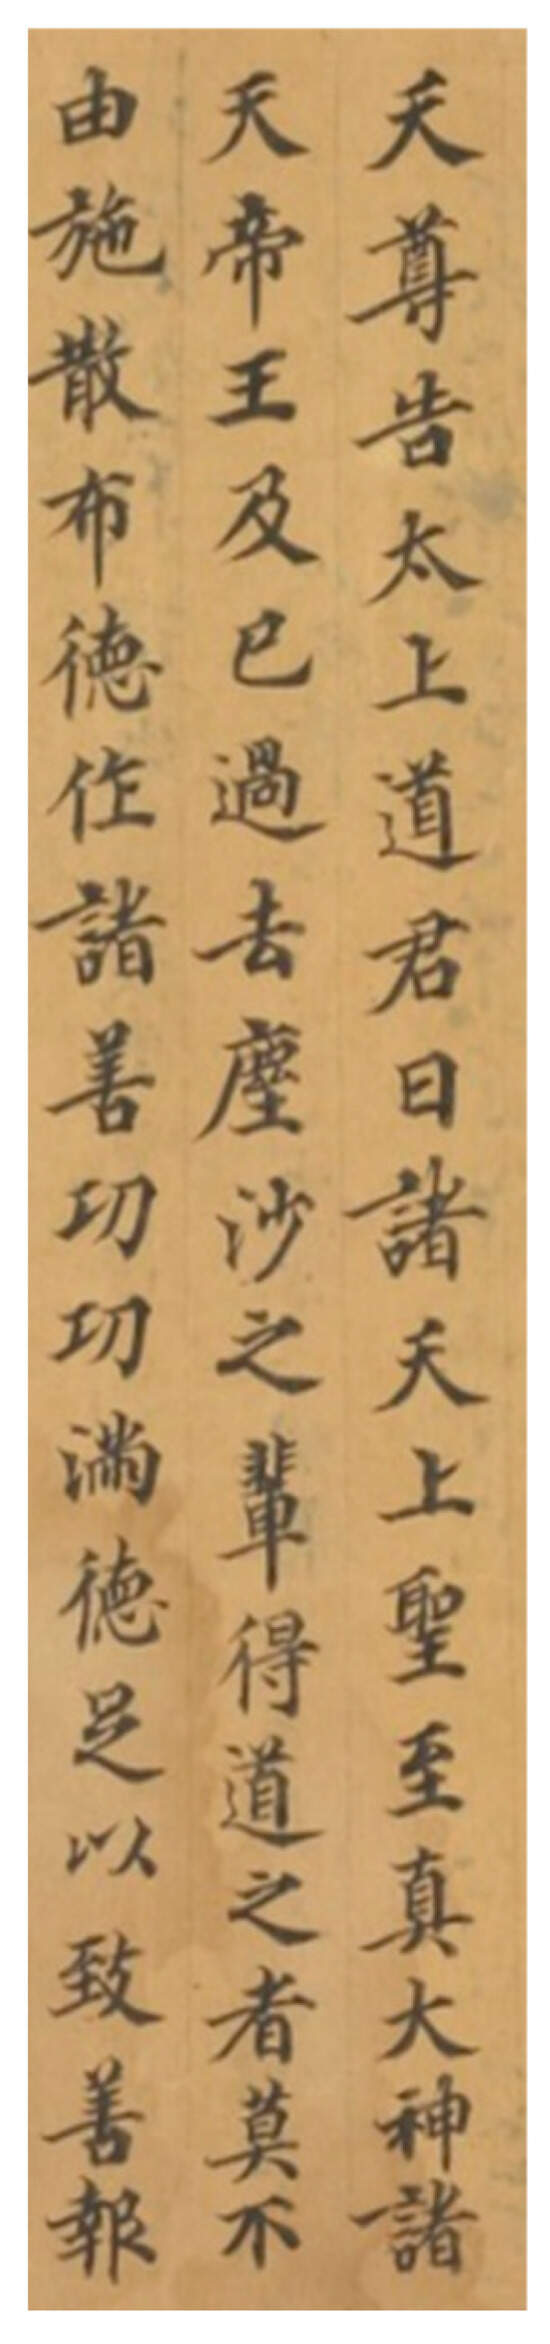 天尊告太上道君曰諸天上聖至真大神諸
天帝王及已過去塵沙之輩得道之者莫不
由施散布德作諸善功功滿德足以致善報